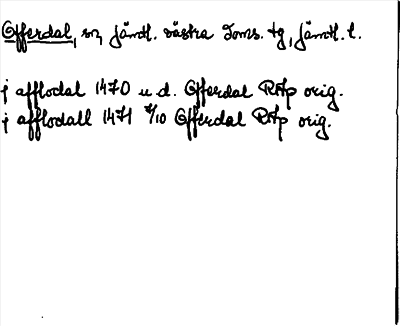 Offerdal, sn, Jämtl. västra doms. tg, Jämtl. l.
j afflodal 1470 u. d. Offerdal RAp orig.
j afflodall 1471 4/10 Offerdal RAp orig.